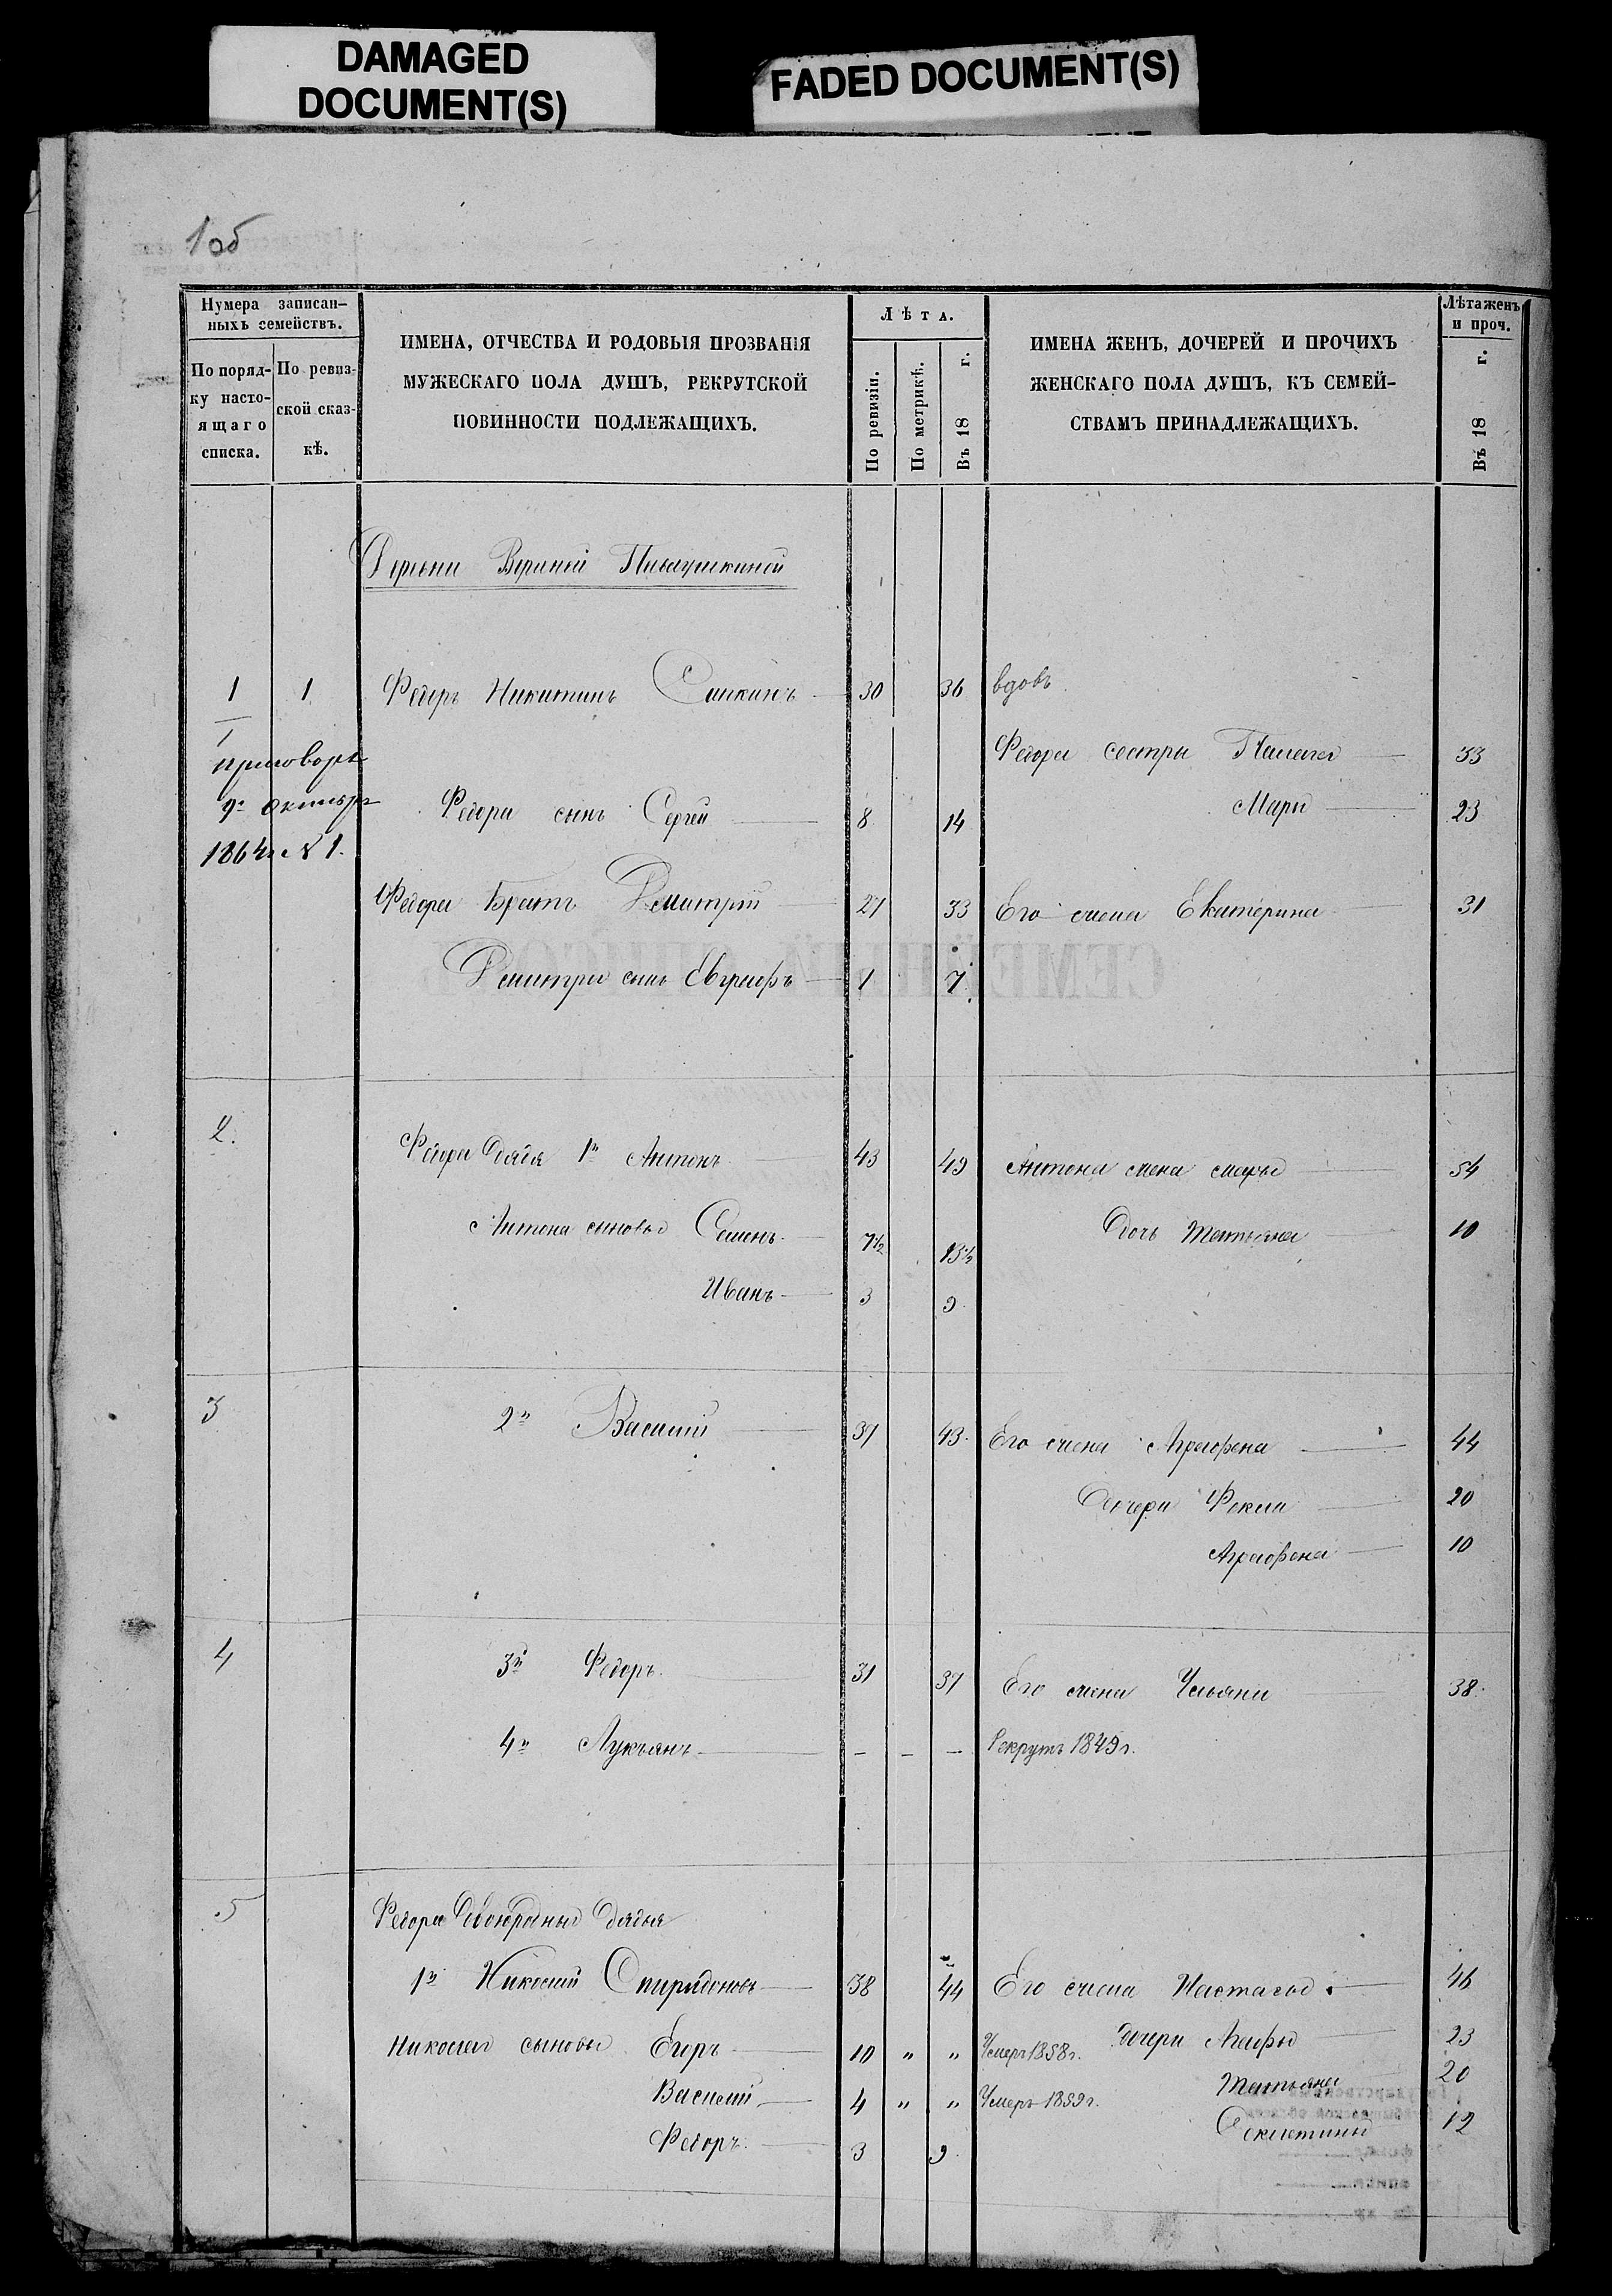 DAMAGED
DOCUMENT(S)
FADED DOCUMENT(S)
1об
Нумера записан-
ныхъ семействъ.
По поряд-
ку насто-
ящаго
списка.
По ревиз-
ской сказ-
кѣ.
ИМЕНА, ОТЧЕСТВА И РОДОВЫЯ ПРОЗВАНІЯ
МУЖЕСКАГО ПОЛА ДУШЪ, РЕКРУТСКОЙ
ПОВИННОСТИ ПОДЛЕЖАЩИХЪ.
Лѣта.
По ревизіи.
По метрикѣ.
Въ 18 г.
ИМЕНА ЖЕНЪ, ДОЧЕРЕЙ И ПРОЧИХЪ
ЖЕНСКАГО ПОЛА ДУШЪ, КЪ СЕМЕЙ-
СТВАМЪ ПРИНАДЛЕЖАЩИХЪ.
Лѣта женъ
и проч.
Въ 18 г.
1 1 Федоръ Никитинъ 30 36 вдовъ
Федора сестры Палагея 33
1
приговоръ
9го Октября
1864г. № 1.
Марья 23
Федора сынъ Сергей 8 14
Федора Братъ Дмитрий 27 33 Его жена Екатерина 31
Дмитрия сынъ Евграфъ 1 7
2. Федора дядья 1й Антонъ 43 49 Антона жена Марья 54
Антона сыновья Семенъ 7½ 13½ Дочь Татьяна 10
Иванъ 3 9
3 2й Василий 37 43 Его жена Аграфена 44
Дочери Фекла 20
Аграфена 10
4 3й Федоръ 31 37 Его жена Ульяна 38
4й Лукьянъ - - - Рекрутъ 1849г.
5 Федора Двоюродныя дядья
1й Николай Спиридоновъ 38 44 Его жена Настасья 46
Николая сыновья Егоръ 10 " " Умеръ 1858г. дочери Агафья 23
Василий 4 " " Умеръ 1859г. Татьяна 20
Федоръ 3 9 12